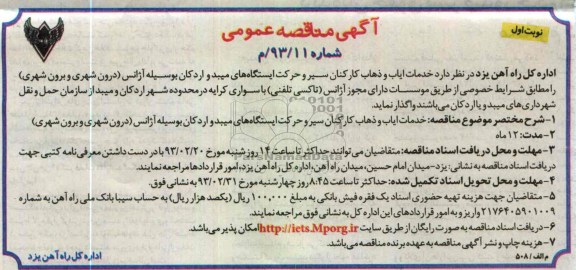 نوبت اول
آگهی مناقصه عمومی
شماره ۹۳/۱۱/م
اداره کل راه آهن یزد در نظر دارد خدمات ایاب و ذهاب کارکنان سیر و حرکت ایستگاه‌های میبد و اردکان بوسیله آژانس (درون شهری و برون شهری)
را مطابق شرایط خصوصی از طریق موسسات دارای مجوز آژانس (تاکسی تلفنی) با سواری کرایه در محدوده شهر اردکان و میبد از سازمان حمل و نقل
شهرداری‌های میبد و یا اردکان می‌باشند واگذار نماید.
۱- شرح مختصر موضوع مناقصه: خدمات ایاب و ذهاب کارکنان سیر و حرکت ایستگاه‌های میبد و اردکان بوسیله آژانس (درون شهری و برون شهری)
۲- مدت: ۱۲ ماه
۳- مهلت و محل دریافت اسناد مناقصه: متقاضیان می‌توانند حداکثر تا ساعت ۱۴ روز شنبه مورخ ۹۳/۰۲/۲۰ با در دست داشتن معرفی نامه کتبی جهت
دریافت اسناد مناقصه به نشانی: یزد- میدان امام حسین، میدان راه آهن، اداره کل راه آهن یزد، امور قراردادها مراجعه نمایند.
۴- مهلت و محل تحویل اسناد تکمیل شده: حداکثر تا ساعت ۸:۴۵ روز چهارشنبه مورخ ۹۳/۰۲/۳۱ به نشانی فوق.
۵- متقاضیان جهت هزینه تهیه حضوری اسناد یک فقره فیش بانکی به مبلغ ۱۰۰,۰۰۰ ریال (یکصد هزار ریال) به حساب سیبا بانک ملی راه آهن به شماره
۲۱۷۶۴۰۵۹۰۱۰۰۹ واریز و به امور قراردادهای این اداره کل به نشانی فوق مراجعه نمایند.
۶- دریافت اسناد مناقصه به صورت رایگان از طریق سایت http://iets.Mporg.ir امکان پذیر می‌باشد.
۷- هزینه چاپ و نشر آگهی مناقصه به عهده برنده مناقصه می‌باشد.
م الف / ۵۰۸
اداره کل راه آهن یزد